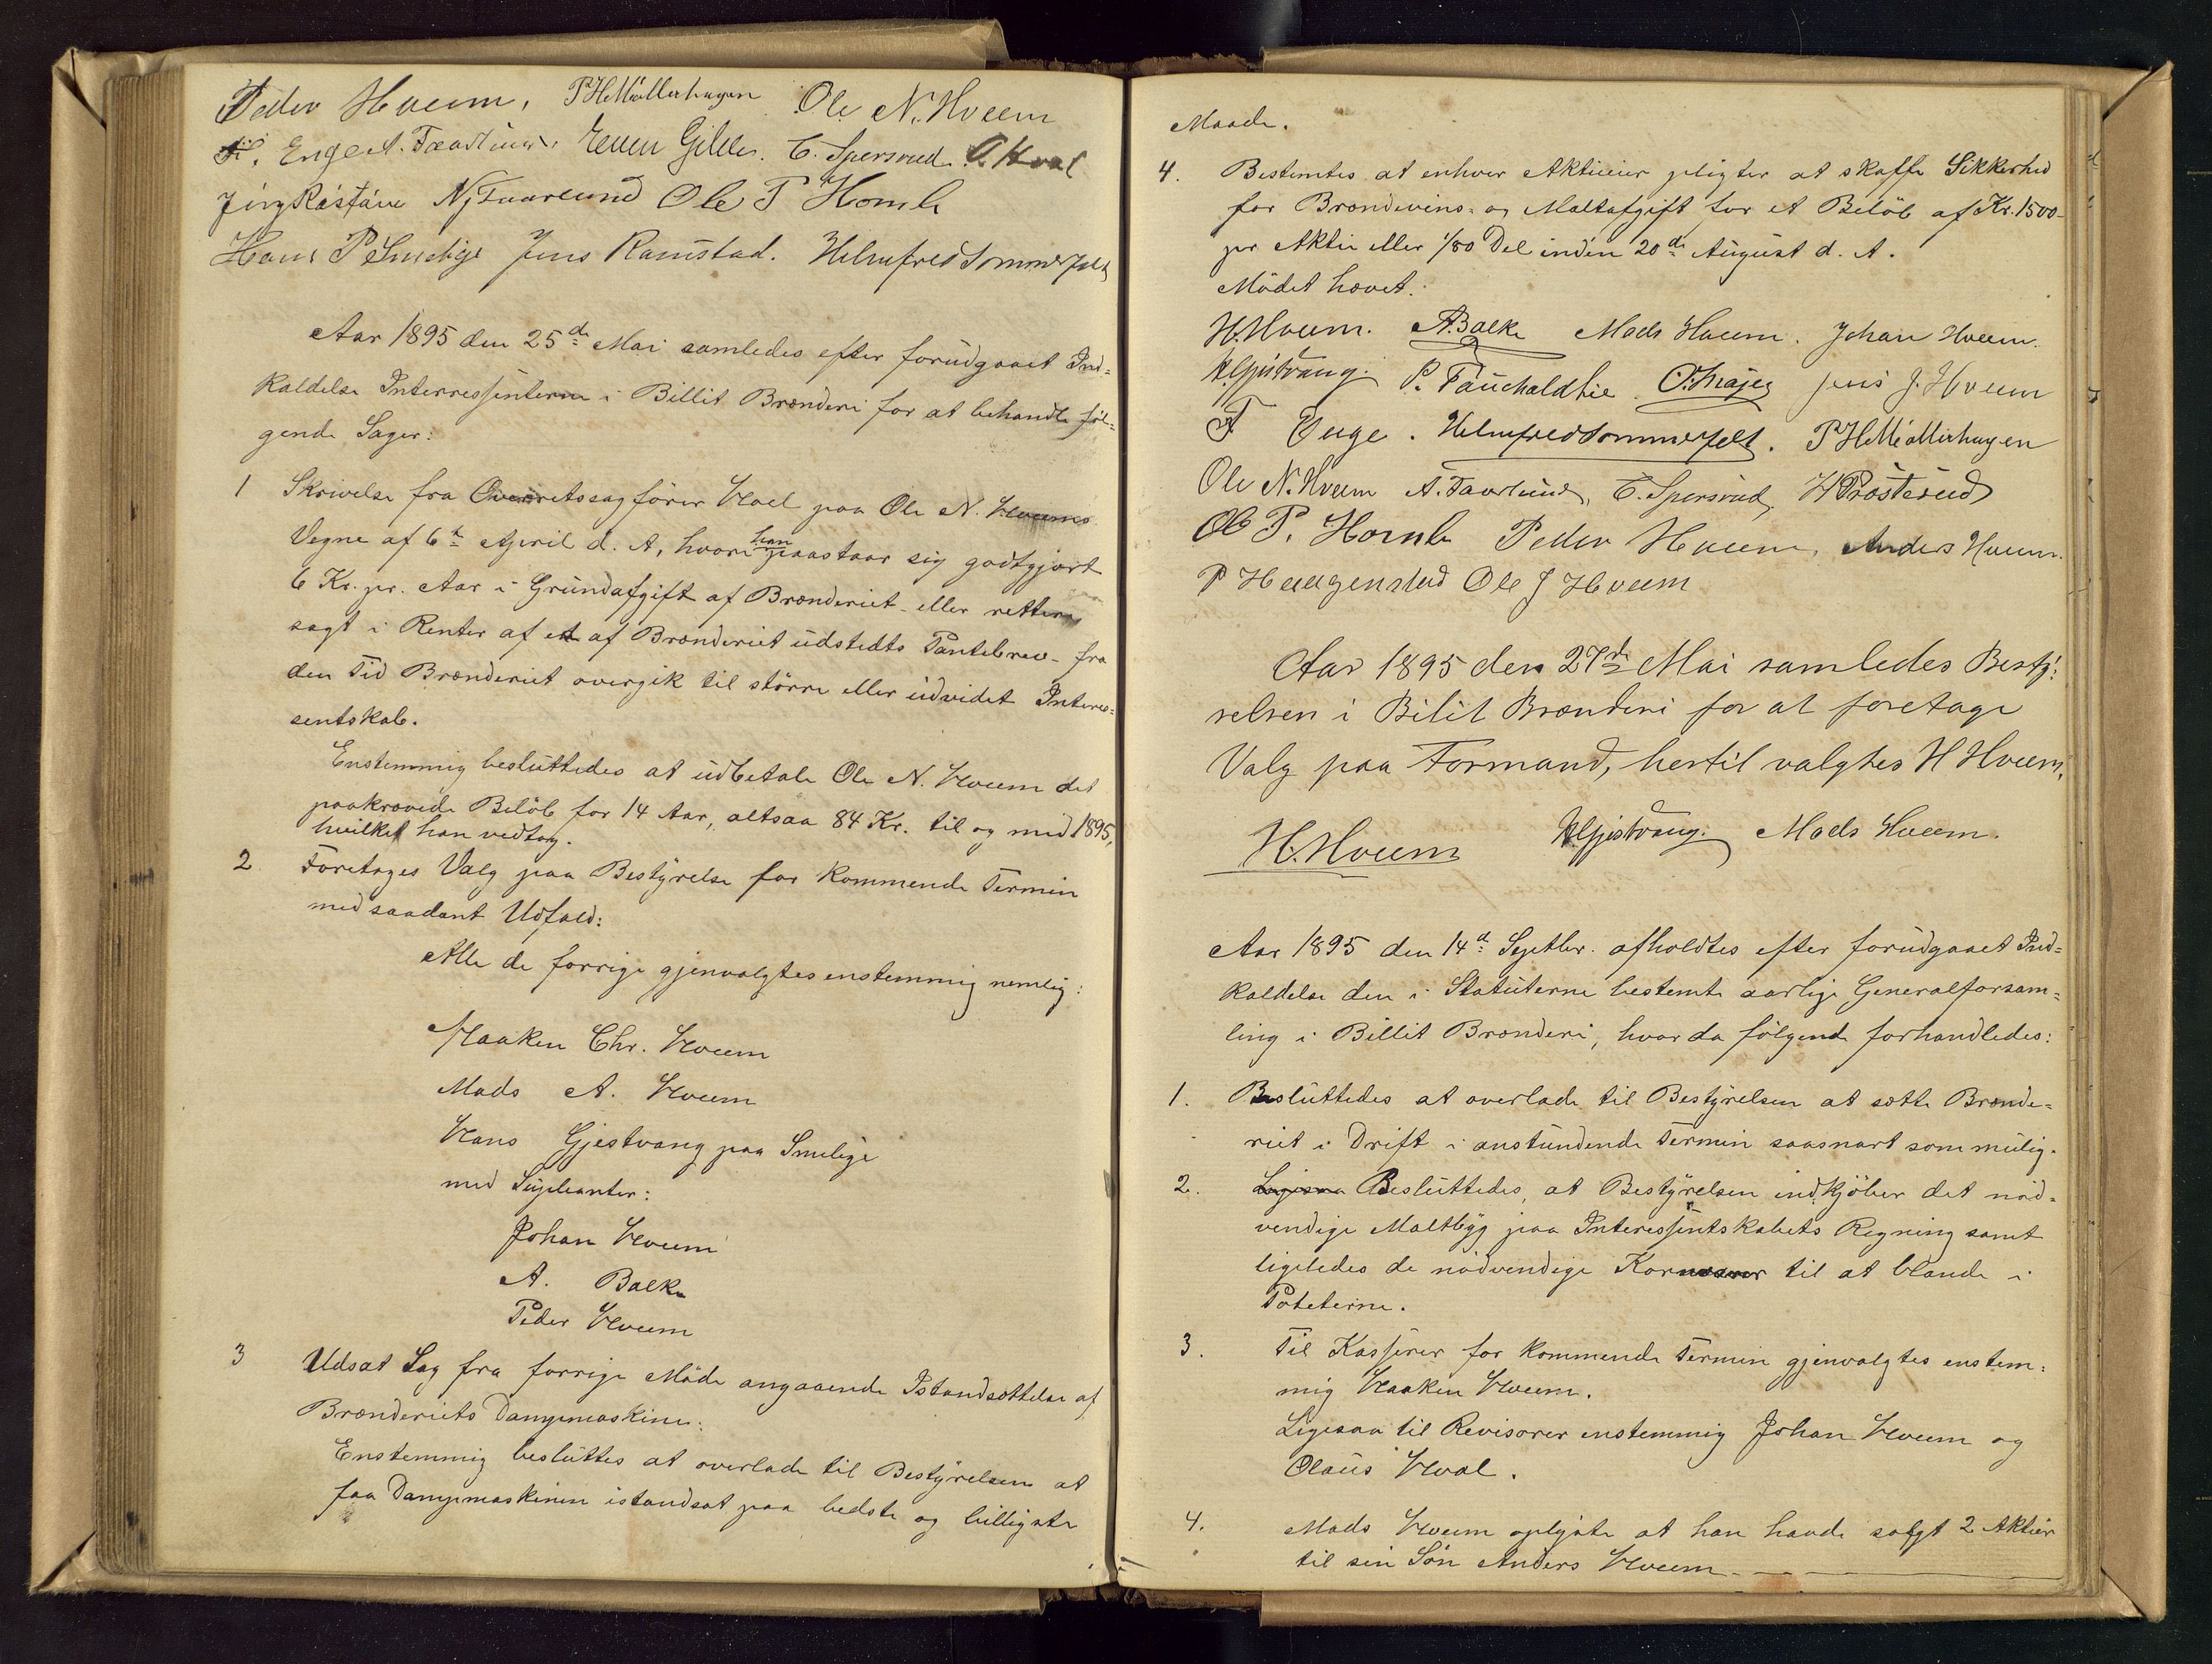 Peder Hveem, P H Møllerhagen Ole N. Hveem
H. Enge A. Faarlund, Even Gilde. C. Spersrud. O. Hval
N Faarlund Ole P Homb
Hans P Smebye Jens Ramstad. Helmfred Sommerfelt
Aar 1895 den 25de Mai samledes efter forudgaaet Ind=
kaldelse Interressenterne i Billit Brænderi for at behandle føl=
gende Sager:
1 Skrivelse fra Overretssagfører Hoel paa Ole N. Hveems
Vegne af 6te April d. A, hvori han paastaar sig godtgjort
6 Kr. pr. Aar i Grundafgift af Brænderiet – eller rettere
sagt i Renter af et af Brænderiet udstedts Pantebrev – fra
den Tid Brænderiet overgik til større eller udvidet Interes=
sentskab.
Enstemmig besluttedes at udbetale Ole N. Hveem det
paakrævede Beløb for 14 Aar, altsaa 84 Kr. til og med 1895,
hvilket han vedtog.
2 Foretages Valg paa Bestyrelse for kommende Termin
med saadant Udfald:
Alle de forrige gjenvalgtes enstemmig nemlig:
Haaken Chr. Hveem
Mads A. Hveem
Hans Gjestvang paa Smebye
med Supleanter:
Johan Hveem
A. Balke
Peder Hveem
3 Udsat Sag fra forrige Møde angaaende Istandsættelse af
Brænderiets Dampmaskine:
Enstemmig besluttes at overlade til Bestyrelsen at
faa Dampmaskinen istandsat paa bedste og billigste
Maade.
4. Bestemtes at enhver Aktieeier pligter at skaffe Sikkerhed
for Brændevins- og Maltafgift for et Beløb af Kr. 1500-
pr Aktie eller 1/80 Del inden 20de August d. A.
Mødet hævet.
H. Hveem. A. Balke Mads Hveem. Johan Hveem.
H. Gjestvang. P. Fauchaldlie. Jens J. Hveem
F Enge. Helmfred Sommerfelt. P H Møllerhagen
Ole N. Hveem A. Faarlund, C. Spersrud, H Prøsterud
Ole P. Homb Peder Hveem, Anders Hveem.
P Haugenstad Ole J Hveem
Aar 1895 den 27de Mai samledes Besty:
relsen i Bilit Brænderi for at foretage
Valg paa Formand, hertil valgtes H Hveem,
H. Hveem H Gjestvang. Mads Hveem.
Aar 1895 den 14de Septbr. afholdtes efter forudgaaet Ind=
kaldelse den i Statuterne bestemte aarlige Generalforsam=
ling i Billit Brænderi, hvor da følgende forhandledes:
1. Besluttedes at overlade til Bestyrelsen at sætte Brænde=
riet i Drift i anstundende Termin saasnart som mulig.
2. Ligesaa Besluttedes, at Bestyrelsen indkjøber det nød=
vendige Maltbyg paa Interessentskabets Regning samt
ligeledes de nødvendige Kornvarer til at blande i
Poteterne.
3. Til Kasserer for kommende Termin gjenvalgtes enstem=
mig Haaken Hveem.
Ligesaa til Revisorer enstemmig Johan Hveem og
Olaus Hval.
4. Mads Hveem oplyste at han havde solgt 2 Aktier
til sin Søn Anders Hveem